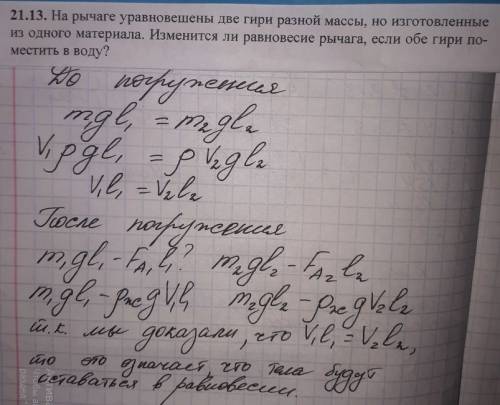 21.13. На рычаге уравновешены две гири разной массы, но изготовленные
из одного материала. Изменится ли равновесие рычага, если обе гири по-
местить в воду?
До погружения
m₁gl₁ = m₂gl₂
V₁ρgl₁ = ρV₂gl₂
V₁l₁ = V₂l₂
После погружения
m₁gl₁ - F_A₁l₁ ? m₂gl₂ - F_A₂l₂
m₁gl₁ - ρ_ж gV₁l₁ m₂gl₂ - ρ_ж gV₂l₂
т.к. мы доказали, что V₁l₁ = V₂l₂,
то это означает, что тела будут
оставаться в равновесии.